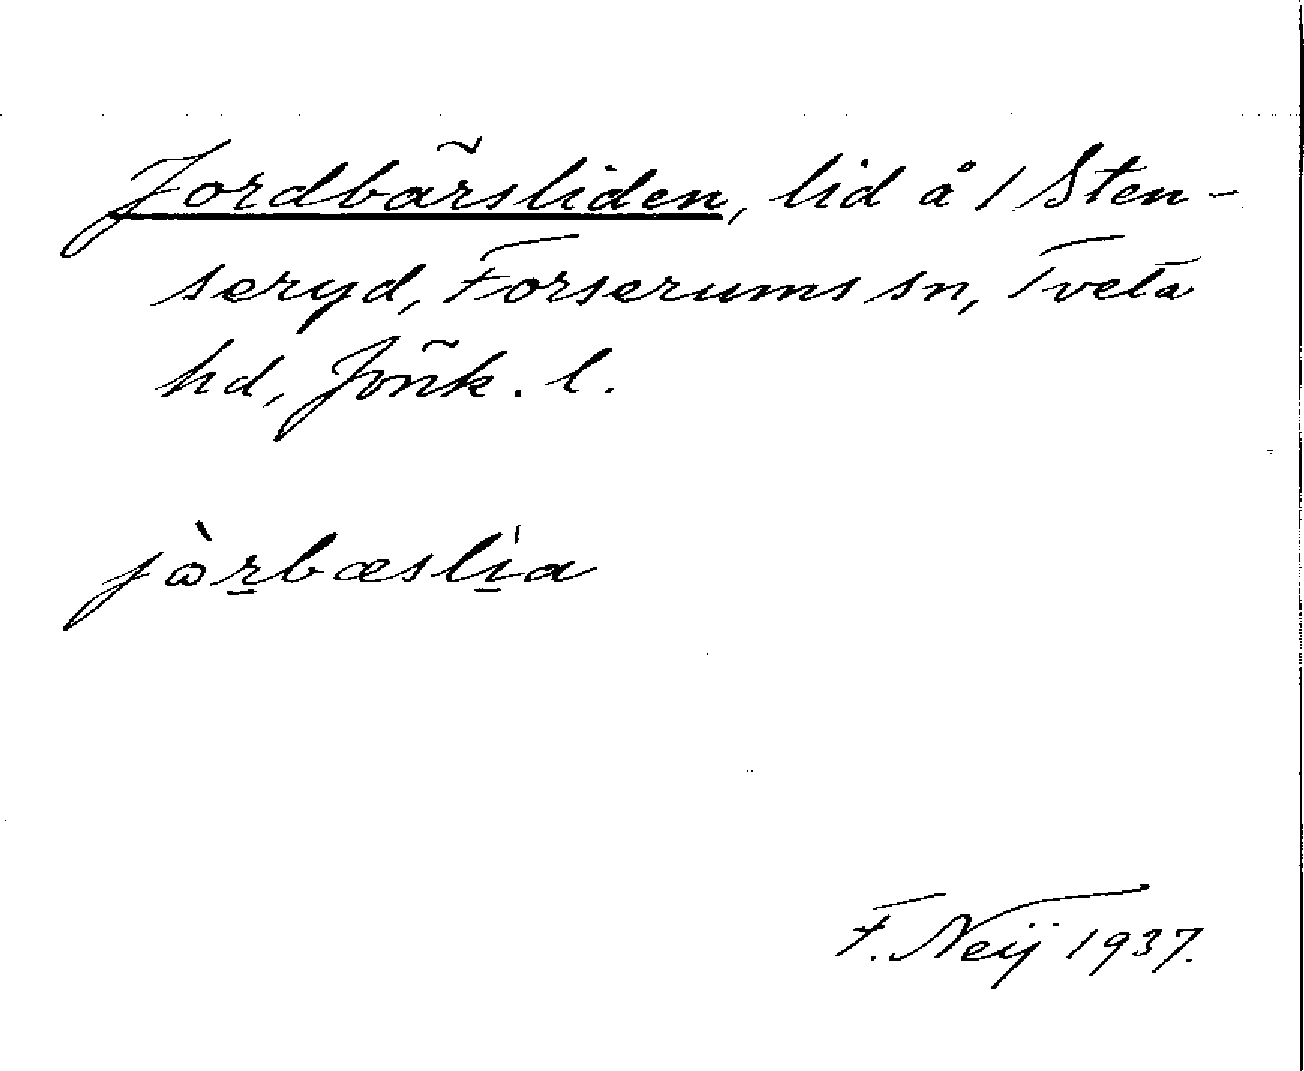 Jordbärsliden, lid å 1 Sten-
seryd, Forserums sn, Tveta
hd, Jönk. l.
jὼr̠bæsli̠̍a
F. Neij 1937.